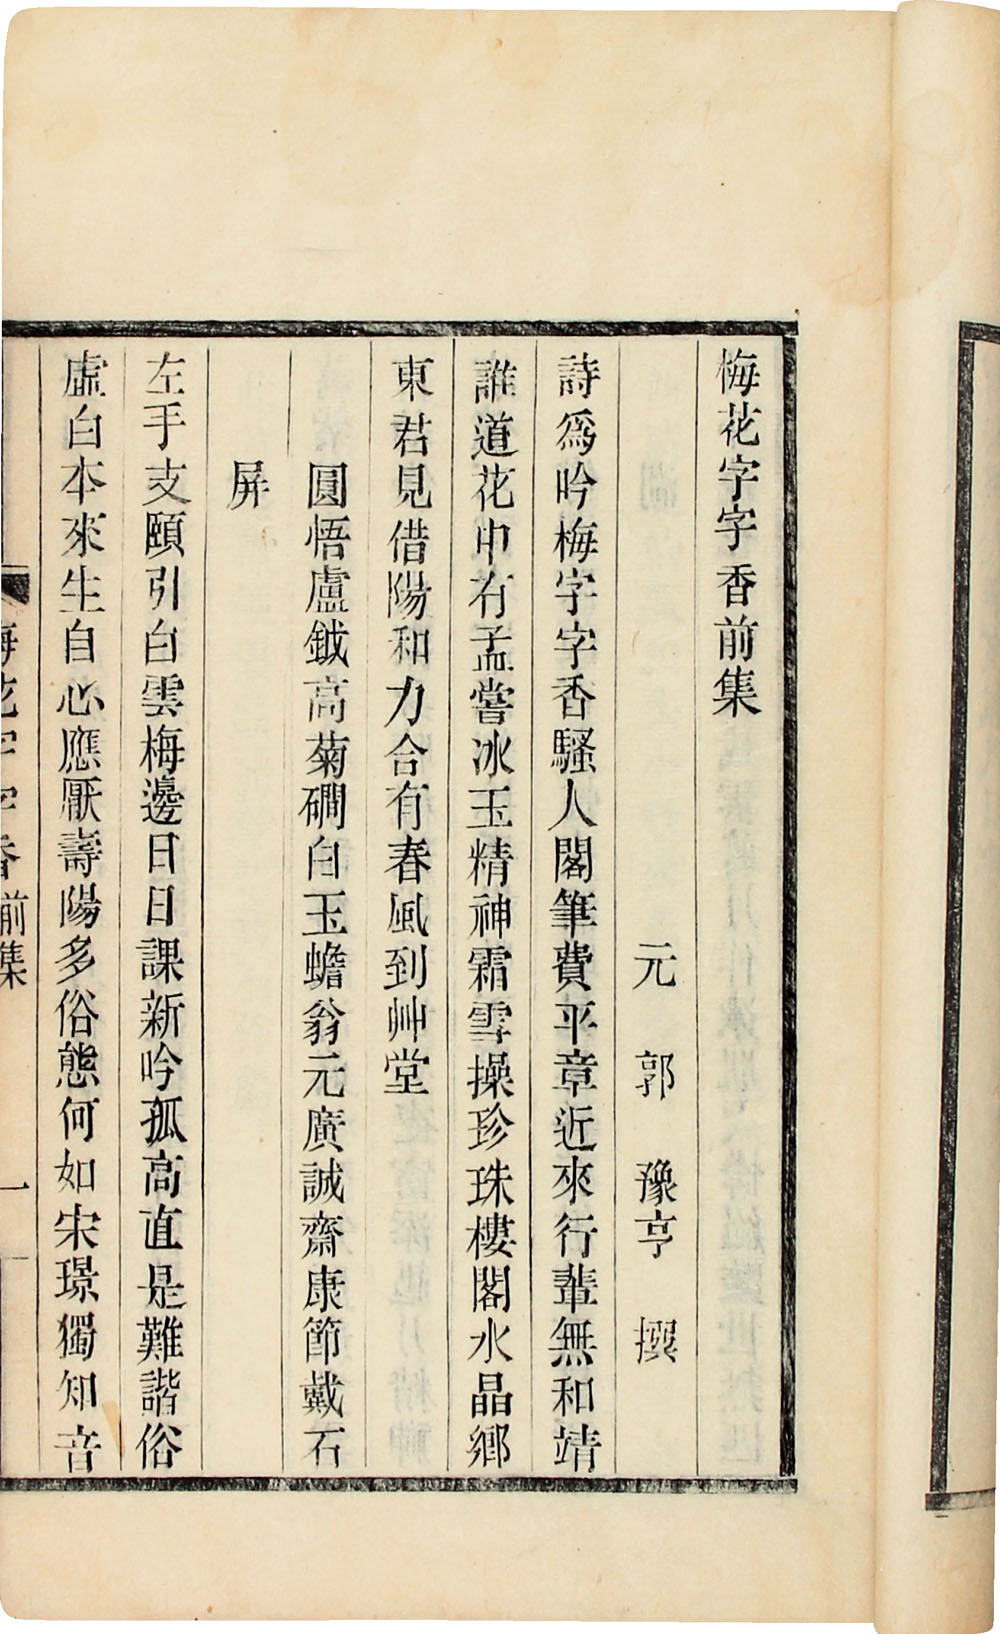 梅花字字香前集
元　郭　豫亨　撰
詩爲吟梅字字香騷人閣筆費平章近來行輩無和靖
誰道花中有孟嘗冰玉精神霜雪操珍珠樓閣水晶鄉
東君見借陽和力合有春風到艸堂
圓悟盧鉞高菊磵白玉蟾翁元廣誠齋康節戴石
屏
左手支頤引白雲梅邊日日課新吟孤高直是難諧俗
虛白本來生自心應厭壽陽多俗態何如宋璟獨知音
梅花字字香前集
一